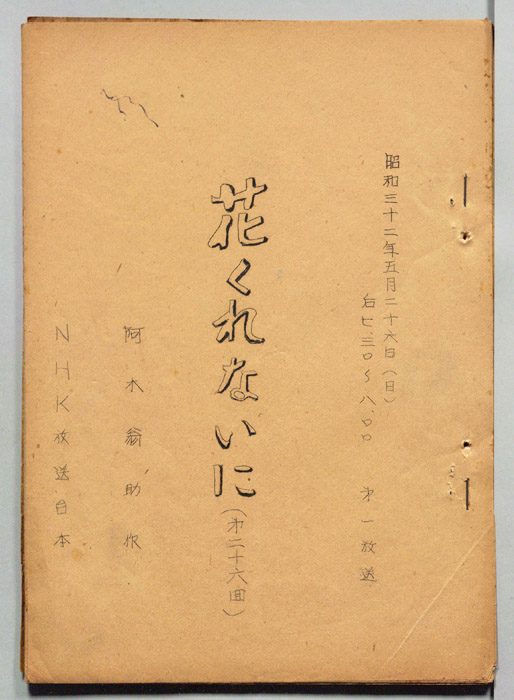 昭和三十二年五月二十六日(日)
后七.三〇〜八.〇〇 第一放送
花くれないに
(第二十六回)
阿木翁助作
NHK放送台本